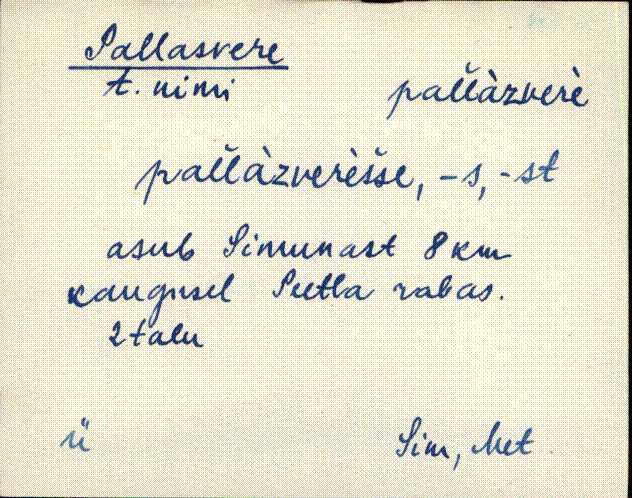 Pallasvere
t. nimi pal̆l̆àzverè
pal̆l̆àzverès̆s̆e, -s, -st
asub Simunast 8 km
kaugusel Seetla rabas.
2 talu
ü Sim, Met